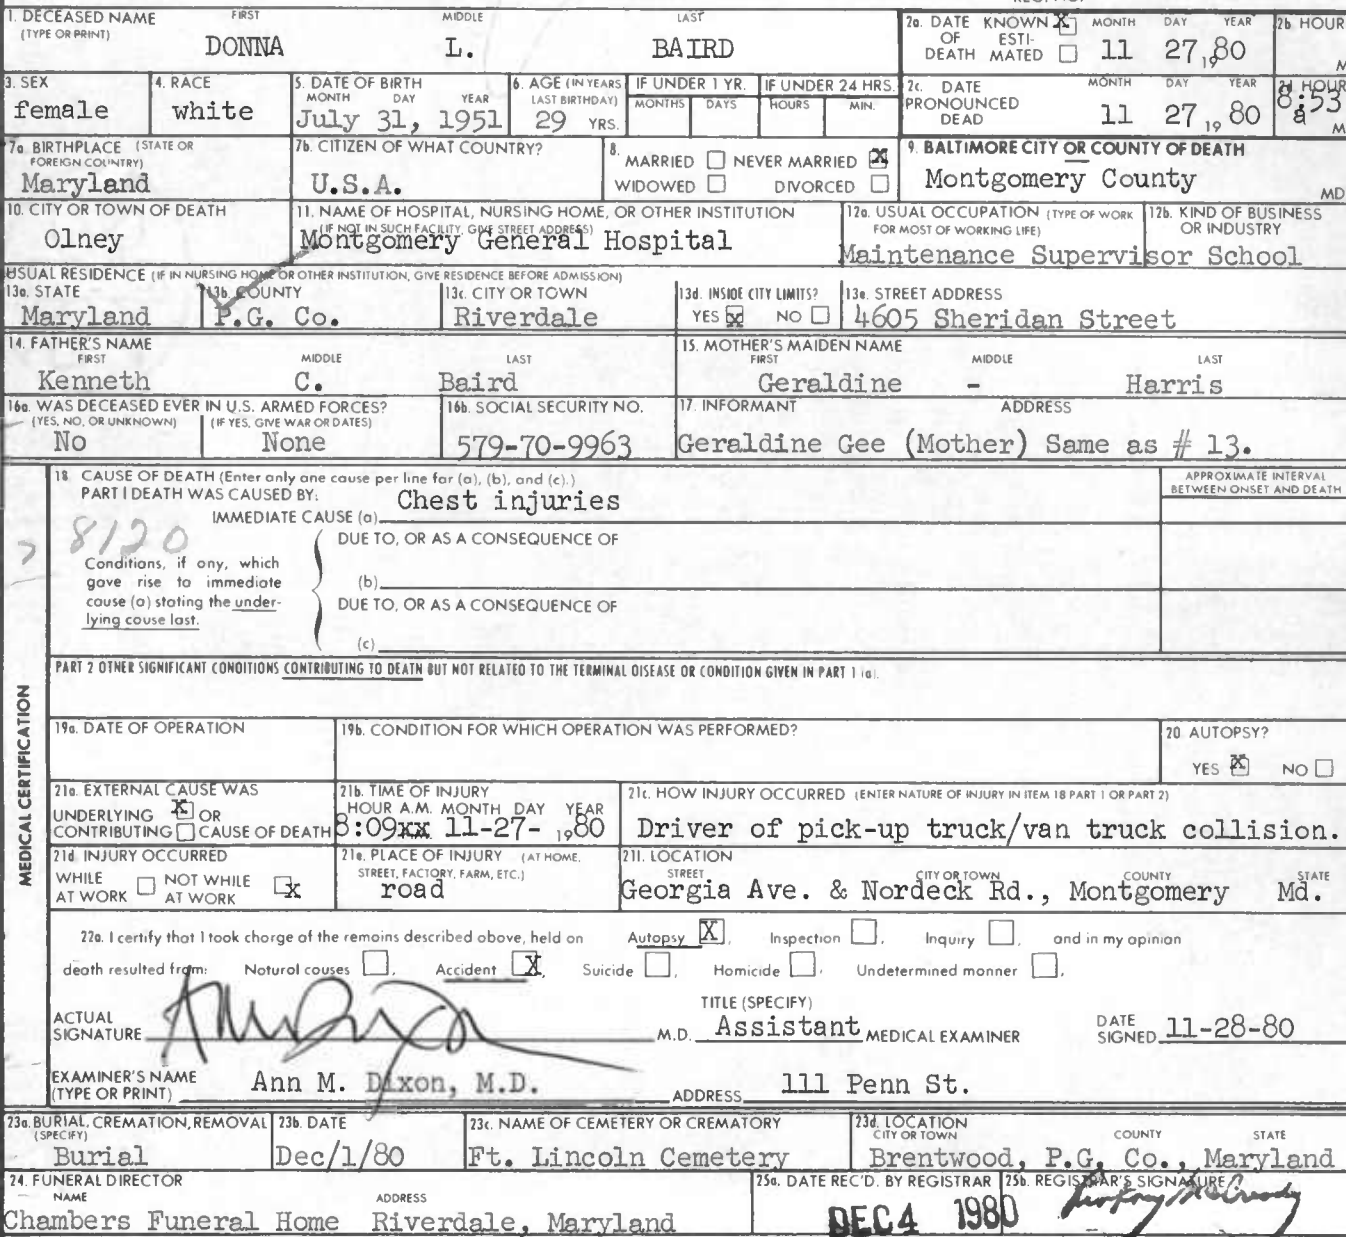 1. DECEASED NAME (TYPE OR PRINT) FIRST MIDDLE LAST
DONNA L. BAIRD
2a. DATE OF DEATH KNOWN [X] ESTIMATED [ ] MONTH DAY YEAR
11 27, 1980
2b HOUR
M
3. SEX
female
4. RACE
white
5. DATE OF BIRTH MONTH DAY YEAR
July 31, 1951
6. AGE (IN YEARS LAST BIRTHDAY)
29 YRS.
IF UNDER 1 YR. MONTHS DAYS
IF UNDER 24 HRS. HOURS MIN.
2c. DATE PRONOUNCED DEAD MONTH DAY YEAR
11 27, 1980
HOUR
8:53
a M
7a BIRTHPLACE (STATE OR FOREIGN COUNTRY)
Maryland
7b. CITIZEN OF WHAT COUNTRY?
U.S.A.
8. MARRIED [ ] NEVER MARRIED [X]
WIDOWED [ ] DIVORCED [ ]
9. BALTIMORE CITY OR COUNTY OF DEATH
Montgomery County MD
10. CITY OR TOWN OF DEATH
Olney
11. NAME OF HOSPITAL, NURSING HOME, OR OTHER INSTITUTION
(IF NOT IN SUCH FACILITY, GIVE STREET ADDRESS)
Montgomery General Hospital
12a. USUAL OCCUPATION (TYPE OF WORK FOR MOST OF WORKING LIFE)
12b. KIND OF BUSINESS OR INDUSTRY
Maintenance Supervisor School
USUAL RESIDENCE (IF IN NURSING HOME OR OTHER INSTITUTION, GIVE RESIDENCE BEFORE ADMISSION)
13a. STATE
Maryland
13b. COUNTY
P.G. Co.
13c. CITY OR TOWN
Riverdale
13d. INSIDE CITY LIMITS?
YES [X] NO [ ]
13e. STREET ADDRESS
4605 Sheridan Street
14. FATHER'S NAME FIRST MIDDLE LAST
Kenneth C. Baird
15. MOTHER'S MAIDEN NAME FIRST MIDDLE LAST
Geraldine - Harris
16a. WAS DECEASED EVER IN U.S. ARMED FORCES?
(YES, NO, OR UNKNOWN) (IF YES, GIVE WAR OR DATES)
No None
16b. SOCIAL SECURITY NO.
579-70-9963
17. INFORMANT ADDRESS
Geraldine Gee (Mother) Same as # 13.
MEDICAL CERTIFICATION
18. CAUSE OF DEATH (Enter only one cause per line for (a), (b), and (c).)
PART I DEATH WAS CAUSED BY:
Chest injuries
IMMEDIATE CAUSE (a)
APPROXIMATE INTERVAL BETWEEN ONSET AND DEATH
8120
DUE TO, OR AS A CONSEQUENCE OF
Conditions, if any, which
gave rise to immediate
cause (a) stating the under-
lying cause last.
(b)
DUE TO, OR AS A CONSEQUENCE OF
(c)
PART 2 OTHER SIGNIFICANT CONDITIONS CONTRIBUTING TO DEATH BUT NOT RELATED TO THE TERMINAL DISEASE OR CONDITION GIVEN IN PART 1 (a).
19a. DATE OF OPERATION
19b. CONDITION FOR WHICH OPERATION WAS PERFORMED?
20 AUTOPSY?
YES [X] NO [ ]
21a. EXTERNAL CAUSE WAS
UNDERLYING [X] OR
CONTRIBUTING [ ] CAUSE OF DEATH
21b. TIME OF INJURY
HOUR A.M. MONTH DAY YEAR
8:09xx 11-27- 1980
21c. HOW INJURY OCCURRED (ENTER NATURE OF INJURY IN ITEM 18 PART 1 OR PART 2)
Driver of pick-up truck/van truck collision.
21d. INJURY OCCURRED
WHILE AT WORK [ ] NOT WHILE AT WORK [x]
21e. PLACE OF INJURY (AT HOME, STREET, FACTORY, FARM, ETC.)
road
21f. LOCATION
STREET CITY OR TOWN COUNTY STATE
Georgia Ave. & Nordeck Rd., Montgomery Md.
22a. I certify that I took charge of the remains described above, held on Autopsy [X], Inspection [ ], Inquiry [ ], and in my opinion
death resulted from: Natural causes [ ], Accident [X], Suicide [ ], Homicide [ ], Undetermined manner [ ].
ACTUAL SIGNATURE
M.D.
TITLE (SPECIFY)
Assistant MEDICAL EXAMINER
DATE SIGNED 11-28-80
EXAMINER'S NAME (TYPE OR PRINT) Ann M. Dixon, M.D.
ADDRESS 111 Penn St.
23a. BURIAL, CREMATION, REMOVAL (SPECIFY)
Burial
23b. DATE
Dec/1/80
23c. NAME OF CEMETERY OR CREMATORY
Ft. Lincoln Cemetery
23d. LOCATION CITY OR TOWN COUNTY STATE
Brentwood, P.G. Co., Maryland
24. FUNERAL DIRECTOR
NAME ADDRESS
Chambers Funeral Home Riverdale, Maryland
25a. DATE REC'D. BY REGISTRAR
DEC 4 1980
25b. REGISTRAR'S SIGNATURE